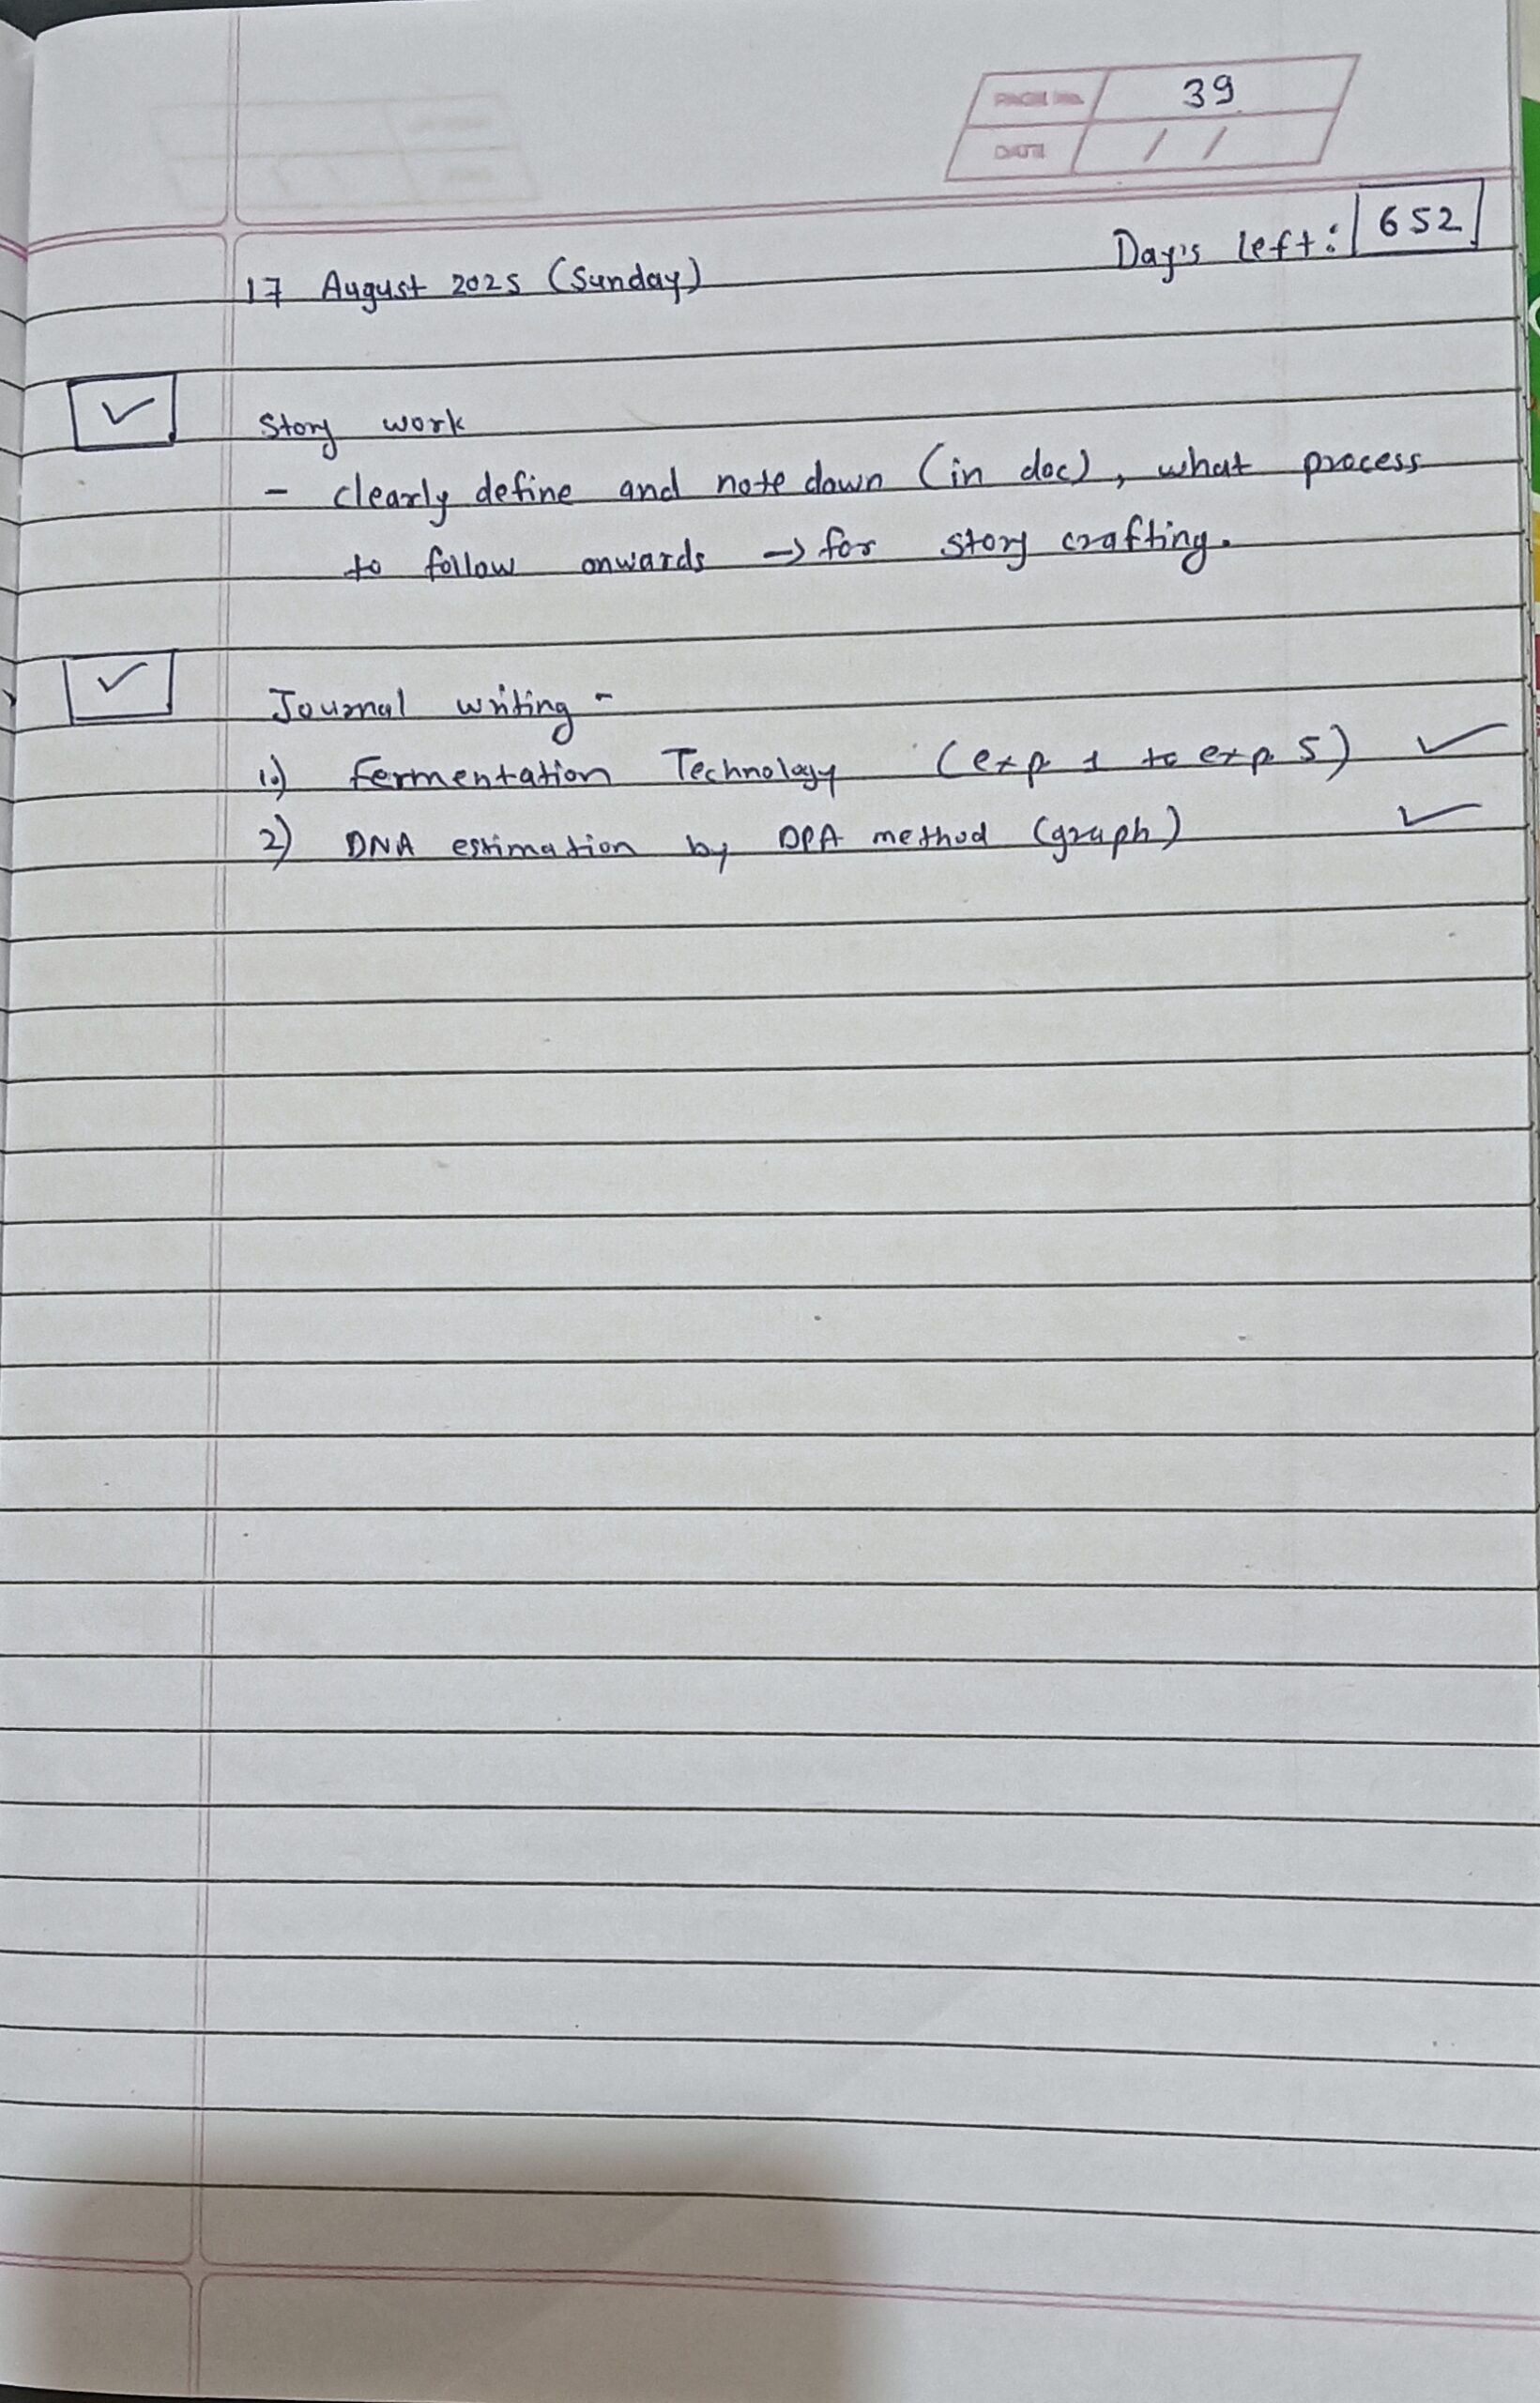 PAGE No. 39
DATE / /
Day's left: 652
17 August 2025 (Sunday)
✓ Story work
- clearly define and note down (in doc), what process
to follow onwards → for story crafting.
✓ Journal writing -
1.) Fermentation Technology (exp. 1 to exp. 5) ✓
2) DNA estimation by DPA method (graph) ✓